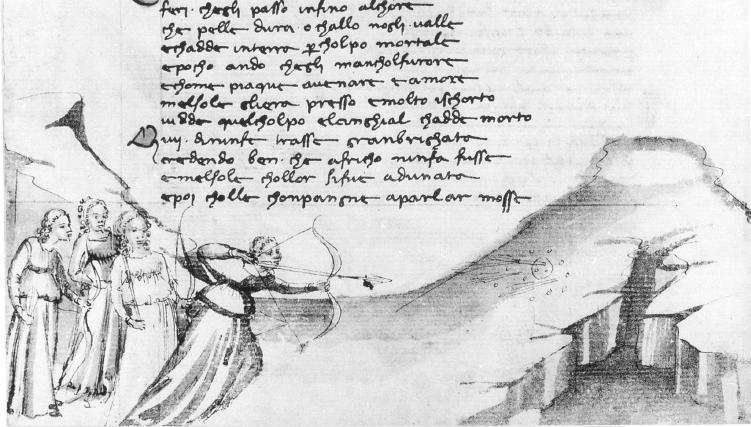 feri · chegli passo infino alchore
che pelle dura o challo nogli · valle
echadde interra p̲ cholpo mortale
epocho ando chegli mancholfurore
echome piaque avenare e amore
melsole gliera presso emolto ischorto
vidde quelcholpo elcinghial chadde morto
Qui · dininfe trasse granbrighata
credendo ben · che africho ninfa fusse
emelsole chollor sifue adunata
epoi cholle chonpangne aparlar mosse